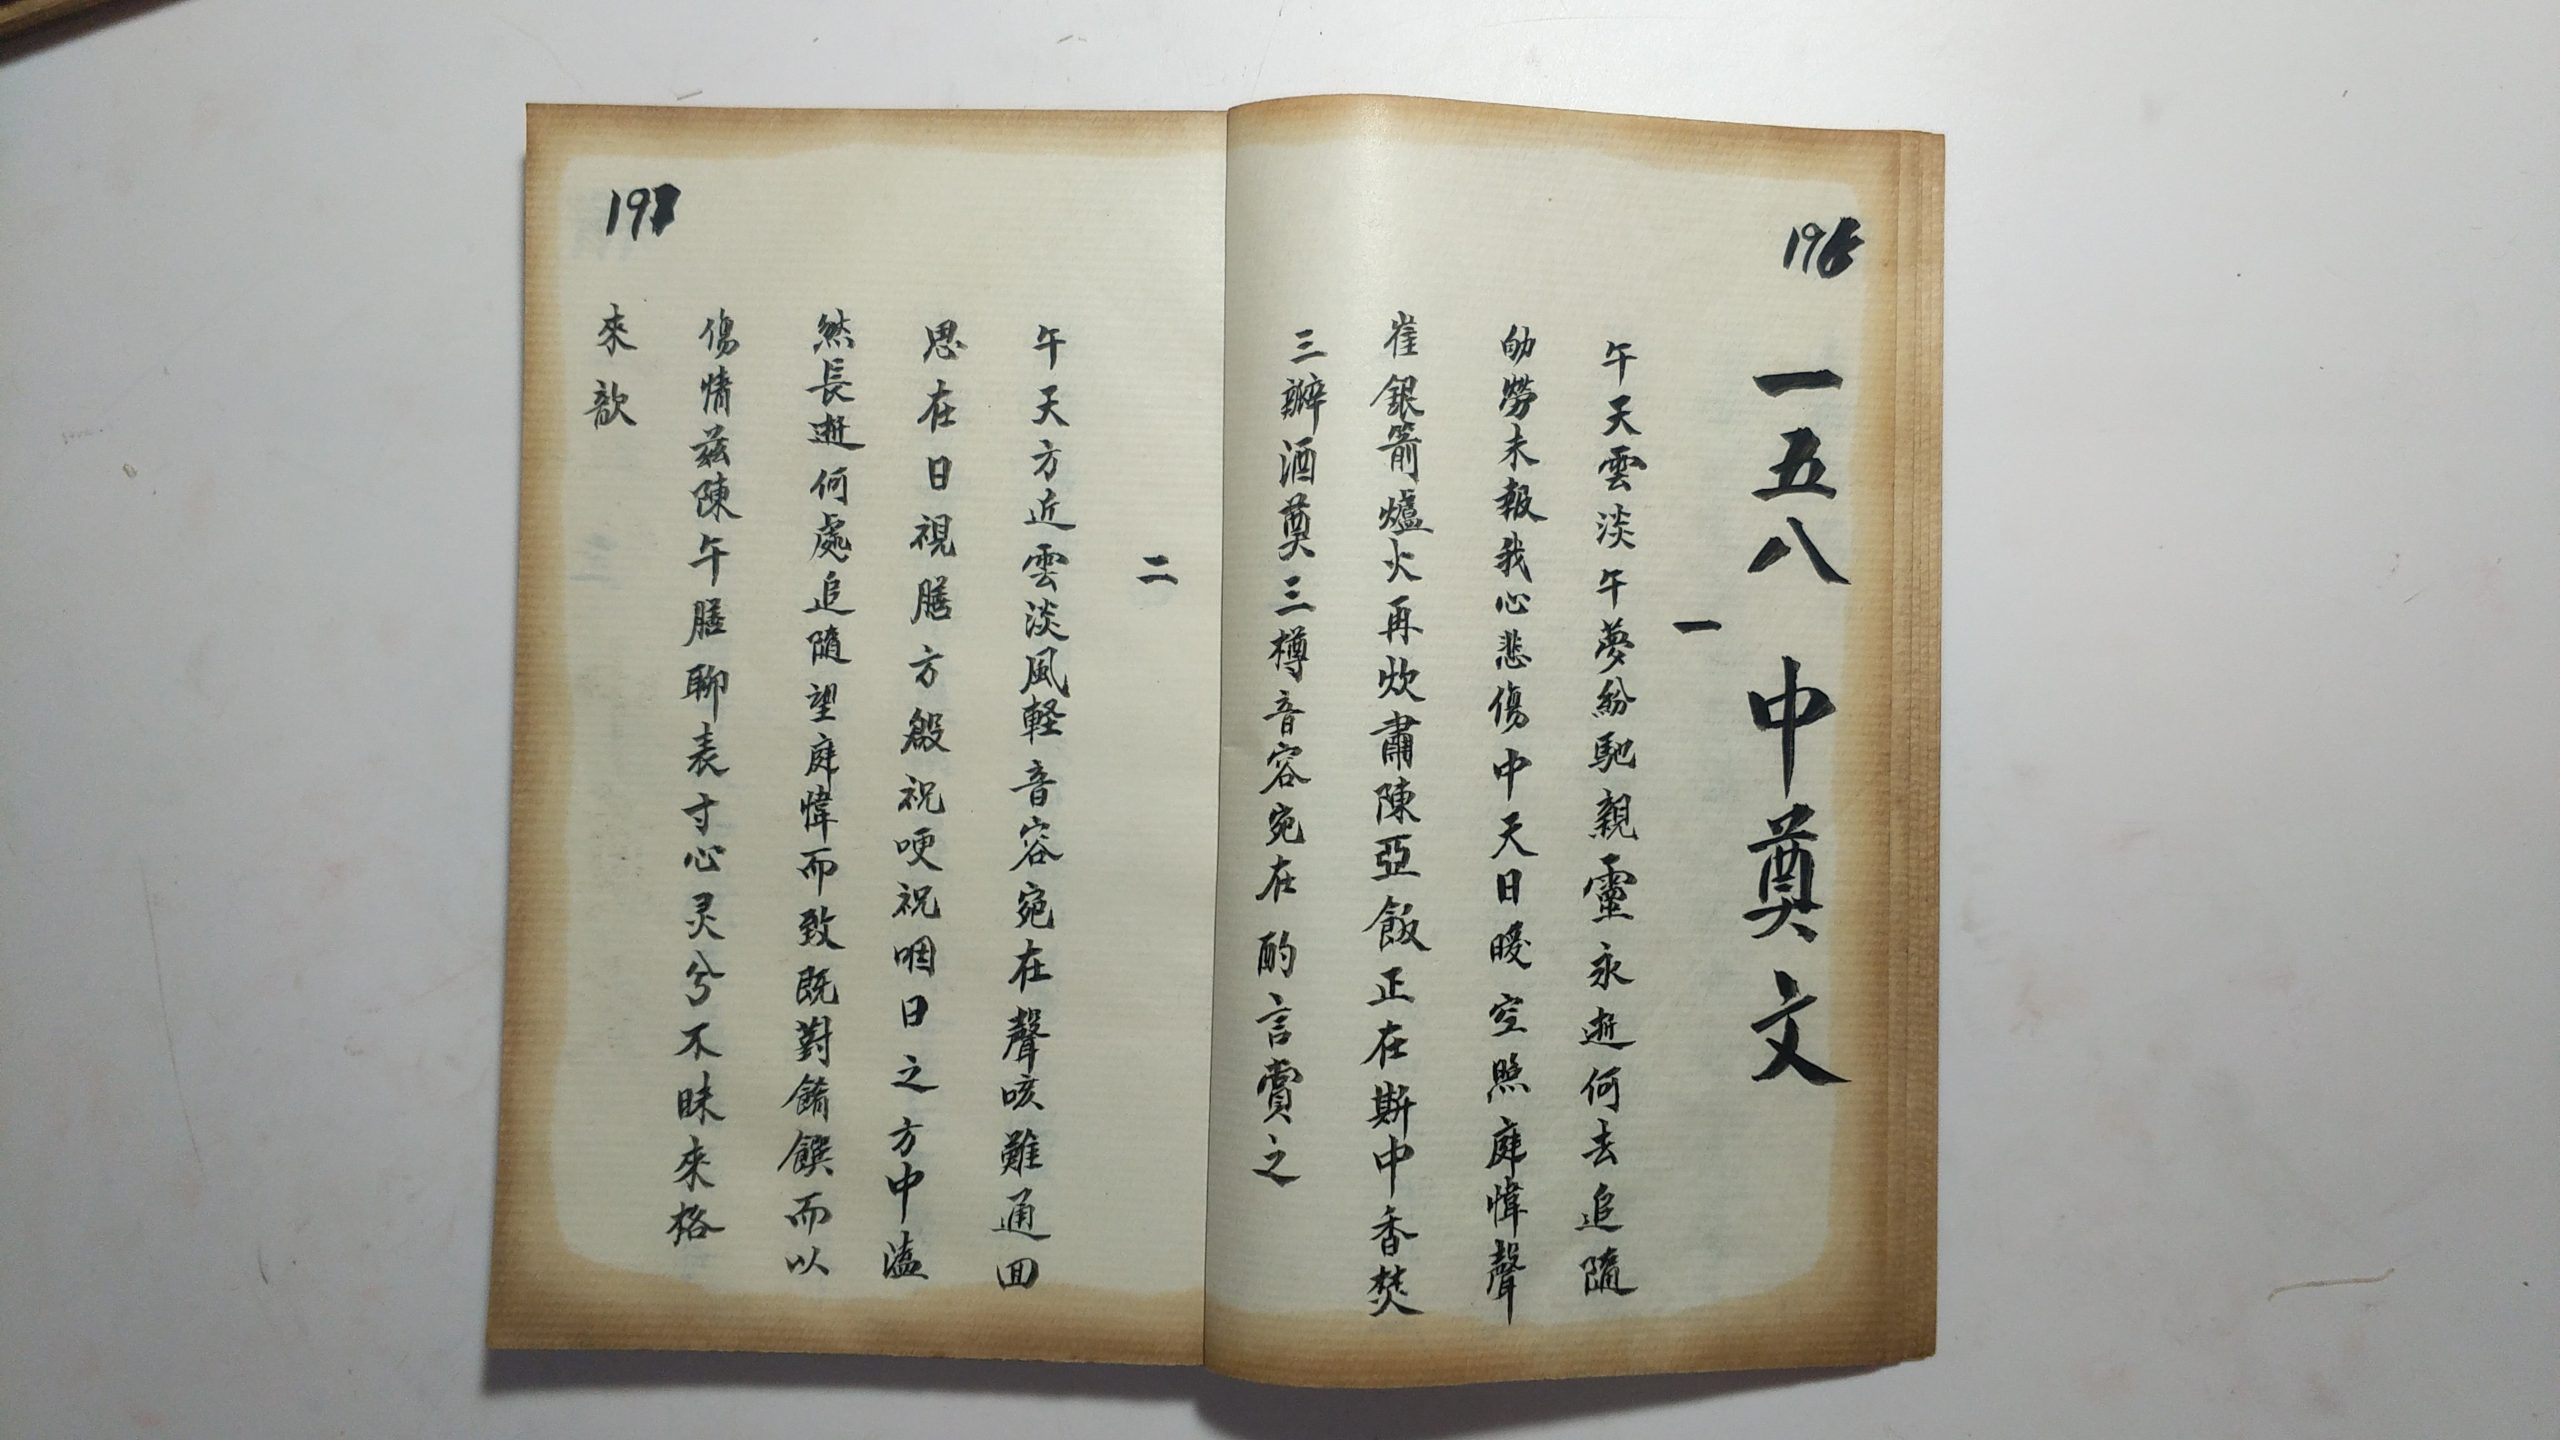 196
一五八 中奠文
一
午天雲淡午夢紛馳親靈永逝何去追隨
劬勞未報我心悲傷中天日暖空照庭幃聲
崔銀箭爐火再炊肅陳亞飯正在斯中香焚
三瓣酒奠三樽音容宛在酌言賞之
197
二
午天方近雲淡風軽音容宛在聲咳難通回
思在日視膳方殷祝哽祝咽日之方中溘
然長逝何處追隨望庭幃而致既對餚饌而以
傷情兹陳午膳聊表寸心灵兮不昧來格
來歆